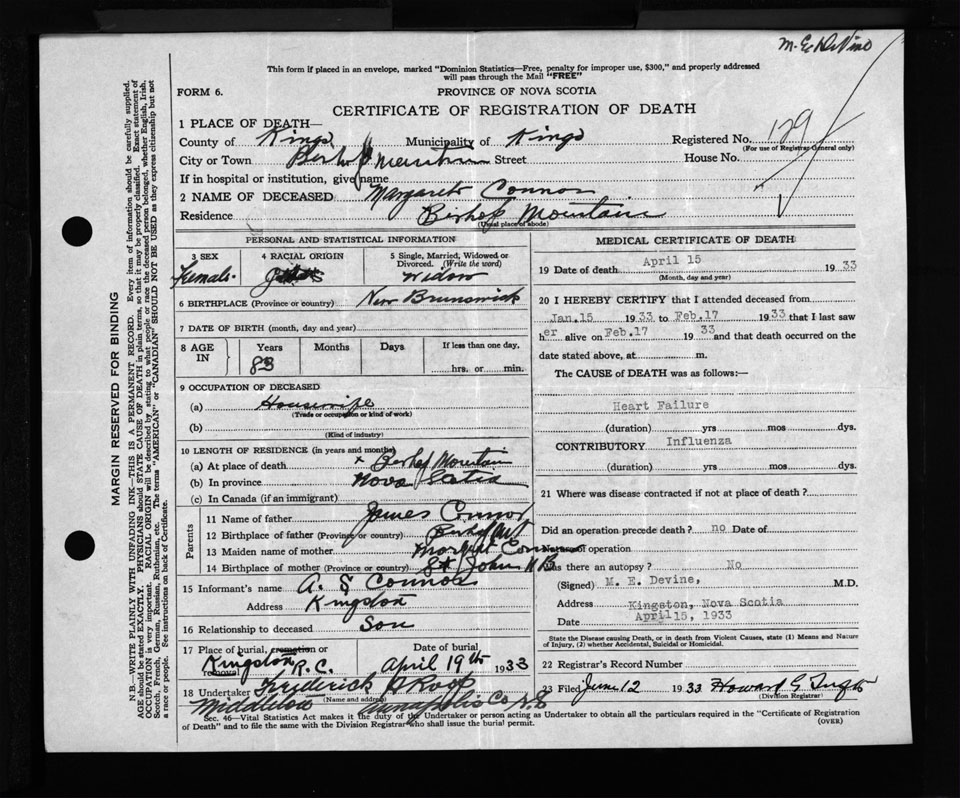 M. E. DeVine
This form if placed in an envelope, marked "Dominion Statistics—Free, penalty for improper use, $300," and properly addressed
will pass through the Mail "FREE"
FORM 6.
PROVINCE OF NOVA SCOTIA
CERTIFICATE OF REGISTRATION OF DEATH
1 PLACE OF DEATH—
County of Kings Municipality of Kings Registered No. 129
(For use of Registrar General only)
City or Town Mountain Street House No.
If in hospital or institution, give name
2 NAME OF DECEASED Margaret Connor
Residence Bishop Mountain
(Usual place of abode)
PERSONAL AND STATISTICAL INFORMATION
3 SEX 4 RACIAL ORIGIN 5 Single, Married, Widowed or Divorced. (Write the word)
Female. Widow
6 BIRTHPLACE (Province or country) New Brunswick
7 DATE OF BIRTH (month, day and year)
8 AGE IN Years Months Days If less than one day,
83 hrs. or min.
9 OCCUPATION OF DECEASED
(a) Housewife
(Trade or occupation or kind of work)
(b)
(Kind of industry)
10 LENGTH OF RESIDENCE (in years and months)
(a) At place of death x Mountain
(b) In province Nova Scotia
(c) In Canada (if an immigrant)
Parents
11 Name of father James Connor
12 Birthplace of father (Province or country)
13 Maiden name of mother Margret
14 Birthplace of mother (Province or country) St John N B
15 Informant's name A. S Connor
Address Kingston
16 Relationship to deceased Son
17 Place of burial, cremation or removal Date of burial,
Kingston R.C. April 19th 1933
18 Undertaker Frederick Roop
(Name and address)
Middleton Annapolis Co N.S
MEDICAL CERTIFICATE OF DEATH
19 Date of death April 15 1933
(Month, day and year)
20 I HEREBY CERTIFY that I attended deceased from
Jan.15 1933 to Feb.17 1933 that I last saw
her alive on Feb.17 1933 and that death occurred on the
date stated above, at m.
The CAUSE of DEATH was as follows:—
Heart Failure
(duration) yrs mos dys.
CONTRIBUTORY Influenza
(duration) yrs mos dys.
21 Where was disease contracted if not at place of death?
Did an operation precede death? no Date of
Nature of operation
Was there an autopsy? No
(Signed) M. E. Devine, M.D.
Address Kingston, Nova Scotia
Date April 15, 1933
State the Disease causing Death, or in death from Violent Causes, state (1) Means and Nature
of Injury, (2) whether Accidental, Suicidal or Homicidal.
22 Registrar's Record Number
23 Filed June 12 1933 Howard G
(Division Registrar)
Sec. 46—Vital Statistics Act makes it the duty of the Undertaker or person acting as Undertaker to obtain all the particulars required in the "Certificate of Registration
of Death" and to file the same with the Division Registrar who shall issue the burial permit.
(OVER)
MARGIN RESERVED FOR BINDING
N.B.—WRITE PLAINLY WITH UNFADING INK—THIS IS A PERMANENT RECORD. Every item of information should be carefully supplied.
AGE should be stated EXACTLY. PHYSICIANS should STATE CAUSE OF DEATH in plain terms, so that it may be properly classified. Exact statement of
OCCUPATION is very important. RACIAL ORIGIN will be described by stating to what people or race the deceased person belonged, whether English, Irish,
Scotch, French, German, Russian, Ruthenian, etc. The terms "AMERICAN" or "CANADIAN" SHOULD NOT BE USED as they express citizenship but not
a race or people. See instructions on back of Certificate.